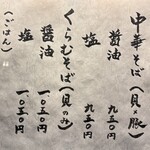 中華そば(貝×豚)
醤油 九五〇円
塩 九五〇円
くらむそば(貝のみ)
醤油 一〇五〇円
塩 一〇五〇円
(ごはん)